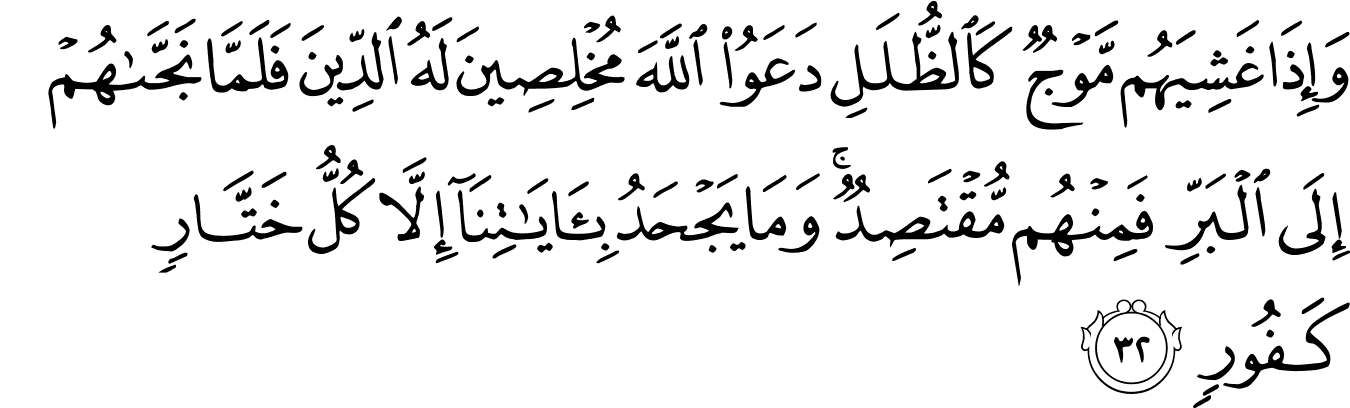 وَإِذَا غَشِيَهُم مَّوْجٌ كَٱلظُّلَلِ دَعَوُا۟ ٱللَّهَ مُخْلِصِينَ لَهُ ٱلدِّينَ فَلَمَّا نَجَّىٰهُمْ
إِلَى ٱلْبَرِّ فَمِنْهُم مُّقْتَصِدٌ ۚ وَمَا يَجْحَدُ بِـَٔايَـٰتِنَآ إِلَّا كُلُّ خَتَّارٍ
كَفُورٍ ٣٢